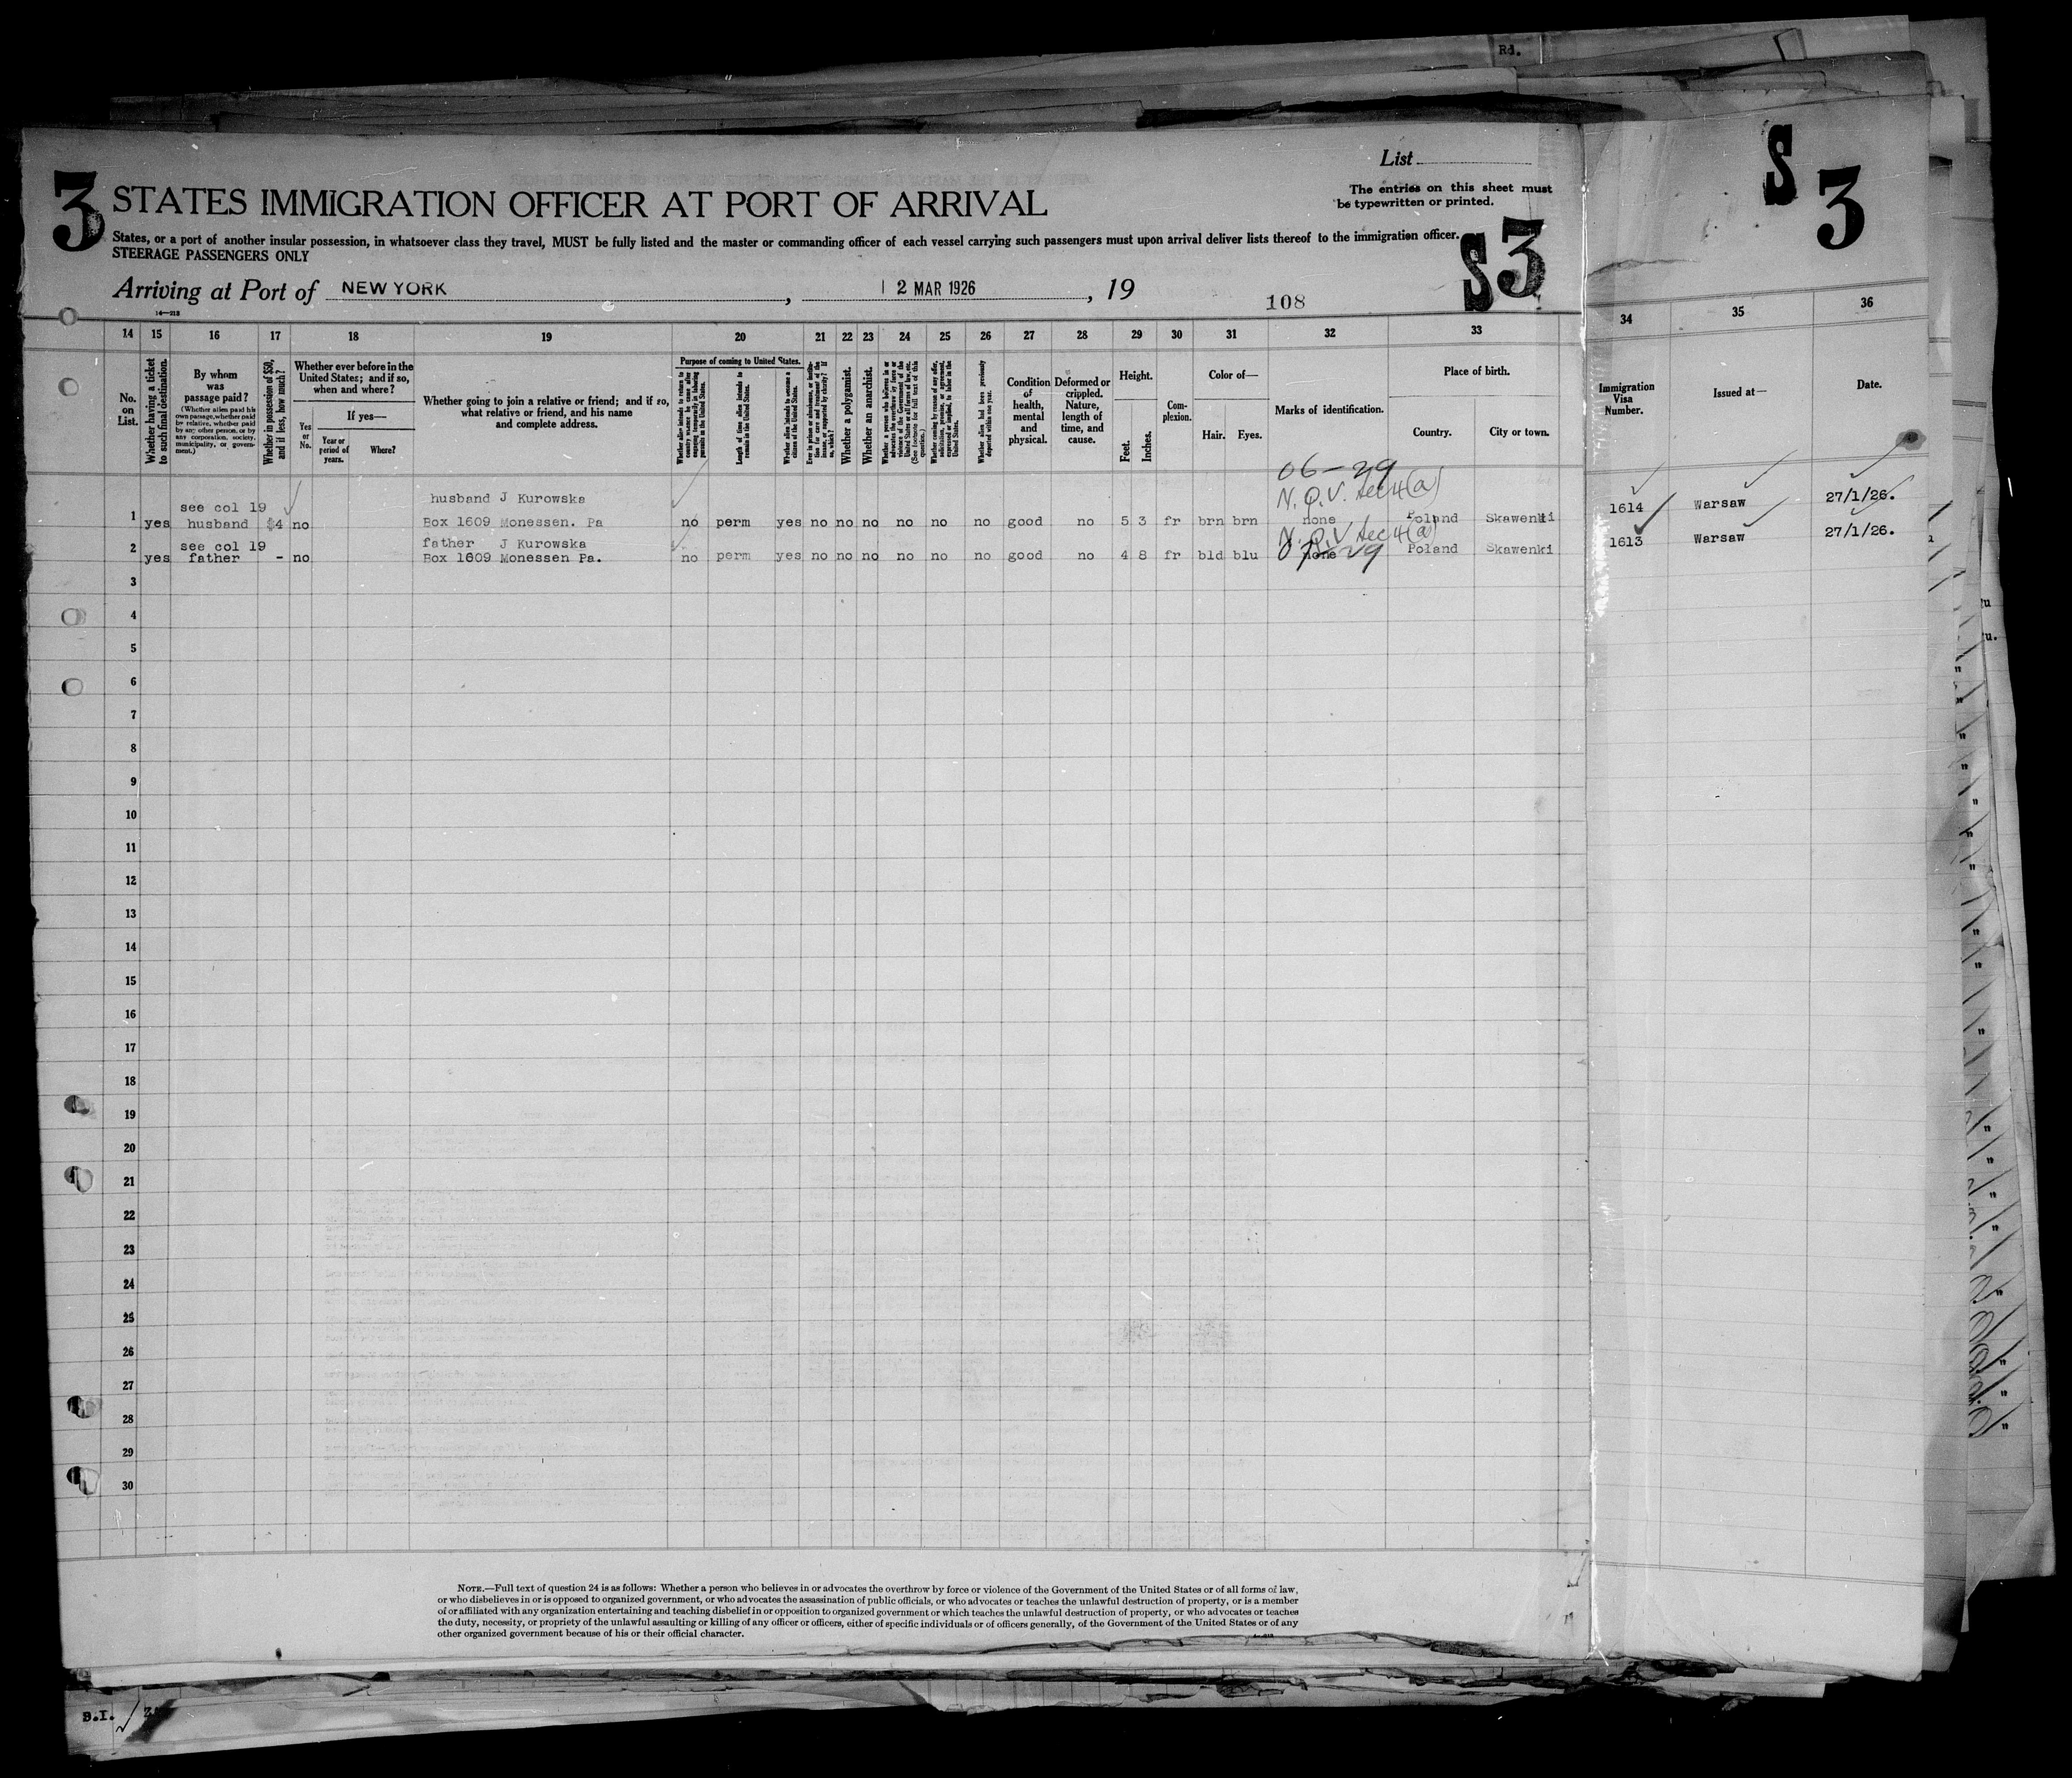 Rd.
List
3
STATES IMMIGRATION OFFICER AT PORT OF ARRIVAL
The entries on this sheet must
be typewritten or printed.
S 3
States, or a port of another insular possession, in whatsoever class they travel, MUST be fully listed and the master or commanding officer of each vessel carrying such passengers must upon arrival deliver lists thereof to the immigration officer.
STEERAGE PASSENGERS ONLY
S 3
Arriving at Port of NEW YORK, 12 MAR 1926, 19
108
14—213
14 15 16 17 18 19 20 21 22 23 24 25 26 27 28 29 30 31 32 33 34 35 36
No. on List.
Whether having a ticket to such final destination.
By whom was passage paid?
(Whether alien paid his own passage, whether paid by relative, whether paid by any other person, or by any corporation, society, municipality, or government.)
Whether in possession of $50, and if less, how much?
Whether ever before in the United States; and if so, when and where?
Yes or No.
If yes—
Year or period of years.
Where?
Whether going to join a relative or friend; and if so, what relative or friend, and his name and complete address.
Purpose of coming to United States.
Whether alien intends to return to country whence he came after engaging temporarily in laboring pursuits in the United States.
Length of time alien intends to remain in the United States.
Whether alien intends to become a citizen of the United States.
Ever in prison or almshouse, or institution for care and treatment of the insane, or supported by charity? If so, which?
Whether a polygamist.
Whether an anarchist.
Whether a person who believes in or advocates the overthrow by force or violence of the Government of the United States or all forms of law, etc. (See footnote for full text of this question.)
Whether coming by reason of any offer, solicitation, promise, or agreement, expressed or implied, to labor in the United States.
Whether alien had been previously deported within one year.
Condition of health, mental and physical.
Deformed or crippled. Nature, length of time, and cause.
Height.
Feet. Inches.
Complexion.
Color of—
Hair. Eyes.
Marks of identification.
Place of birth.
Country. City or town.
Immigration Visa Number.
Issued at—
Date.
06-29
N.Q.V. Sec 4(a)
see col 19 husband J Kurowska
1 yes husband $4 no Box 1609 Monessen. Pa no perm yes no no no no no no good no 5 3 fr brn brn none Poland Skawenki 1614 Warsaw 27/1/26.
N.Q.V Sec 4(a)
see col 19 father J Kurowska
2 yes father - no Box 1609 Monessen Pa. no perm yes no no no no no no good no 4 8 fr bld blu none Poland Skawenki 1613 Warsaw 27/1/26.
3
4
5
6
7
8
9
10
11
12
13
14
15
16
17
18
19
20
21
22
23
24
25
26
27
28
29
30
NOTE.—Full text of question 24 is as follows: Whether a person who believes in or advocates the overthrow by force or violence of the Government of the United States or of all forms of law,
or who disbelieves in or is opposed to organized government, or who advocates the assassination of public officials, or who advocates or teaches the unlawful destruction of property, or is a member
of or affiliated with any organization entertaining and teaching disbelief in or opposition to organized government or which teaches the unlawful destruction of property, or who advocates or teaches
the duty, necessity, or propriety of the unlawful assaulting or killing of any officer or officers, either of specific individuals or of officers generally, of the Government of the United States or of any
other organized government because of his or their official character.